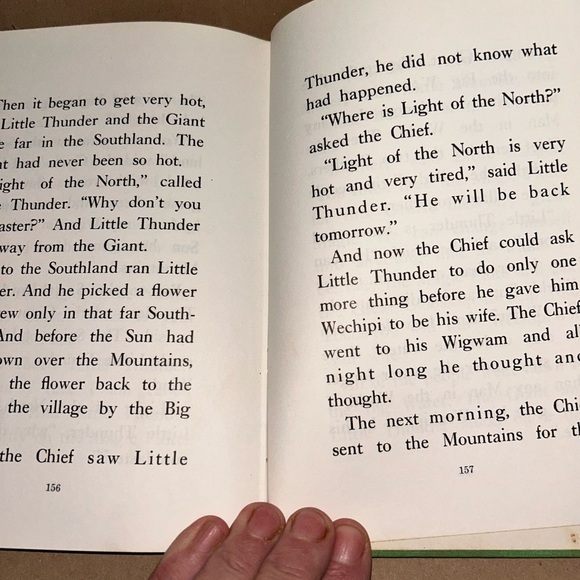 Then it began to get very hot,
Little Thunder and the Giant
far in the Southland. The
had never been so hot.
of the North,” called
Thunder. “Why don’t you
And Little Thunder
away from the Giant.
to the Southland ran Little
And he picked a flower
only in that far South-
And before the Sun had
down over the Mountains,
the flower back to the
the village by the Big
the Chief saw Little
156
Thunder, he did not know what
had happened.
“Where is Light of the North?”
asked the Chief.
“Light of the North is very
hot and very tired,” said Little
Thunder. “He will be back
tomorrow.”
And now the Chief could ask
Little Thunder to do only one
more thing before he gave him
Wechipi to be his wife. The Chief
went to his Wigwam and all
night long he thought and
thought.
The next morning, the Chi
sent to the Mountains for th
157